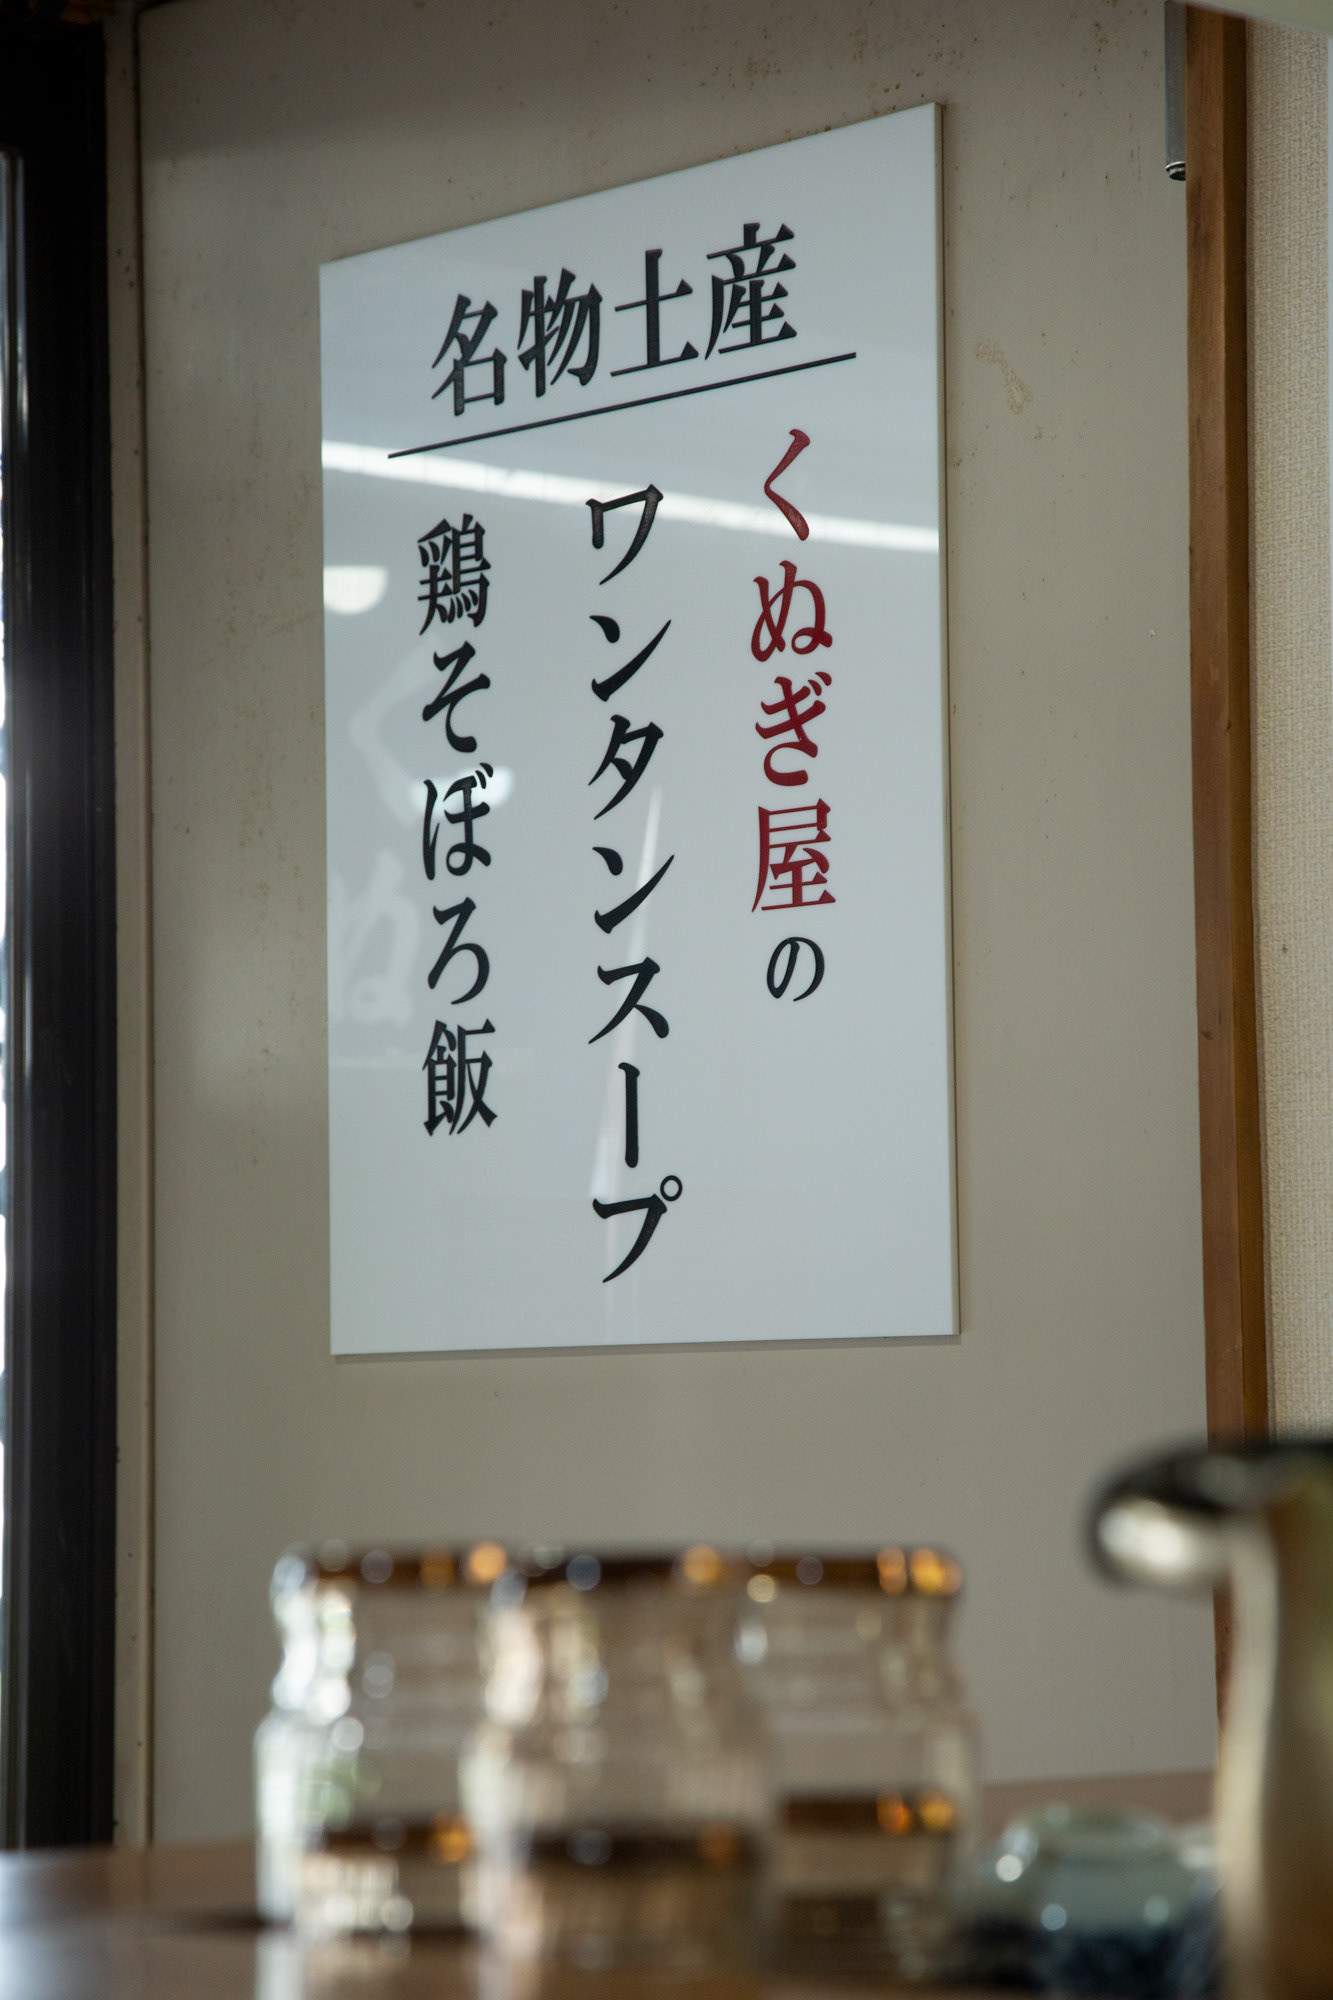 名物土産
くぬぎ屋の
ワンタンスープ
鶏そぼろ飯